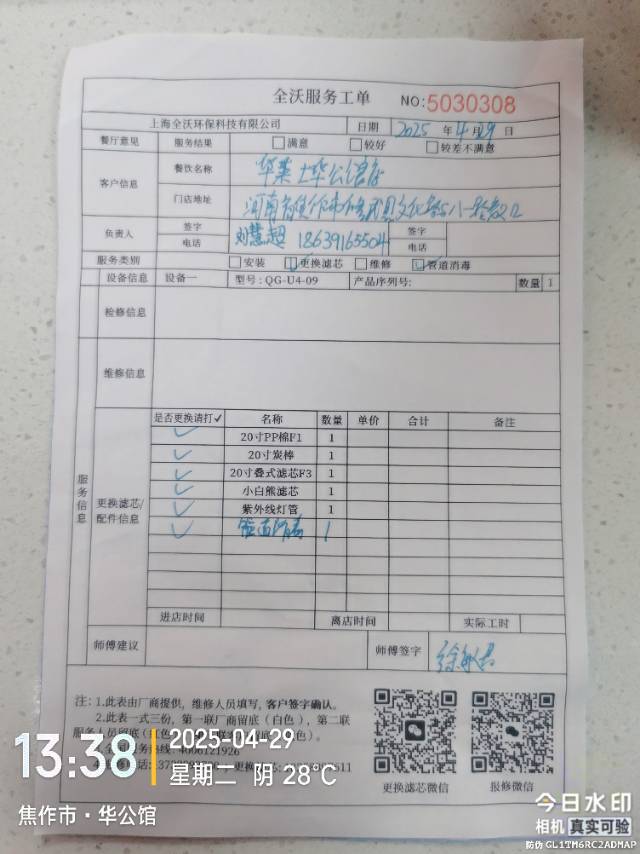 全沃服务工单 NO:5030308
上海全沃环保科技有限公司 日期 2025 年 4 月 29 日
餐厅意见 服务结果 满意 较好 较差不满意
客户信息 餐饮名称 华莱士华公馆店
门店地址 河南省焦作市
负责人 签字 电话 刘慧超 18639165504 签字 电话
服务类别 安装 更换滤芯 维修 管道消毒
设备信息 设备一 型号:QG-U4-09 产品序列号: 数量 1
检修信息
维修信息
服务信息
更换滤芯/配件信息
是否更换请打✓ 名称 数量 单价 合计 备注
✓ 20寸PP棉F1 1
✓ 20寸炭棒 1
✓ 20寸叠式滤芯F3 1
✓ 小白熊滤芯 1
✓ 紫外线灯管 1
✓ 管道消毒 1
进店时间 离店时间 实际工时
师傅建议 师傅签字
注:1.此表由厂商提供,维修人员填写,客户签字确认。
2.此表一式三份,第一联厂商留底(白色),第二联
服务人员留底
4006121926
更换滤芯微信 报修微信
13:38 2025-04-29
星期二 阴 28℃
焦作市·华公馆
今日水印
相机 真实可验
防伪 GL1TM6RC2ADMAP